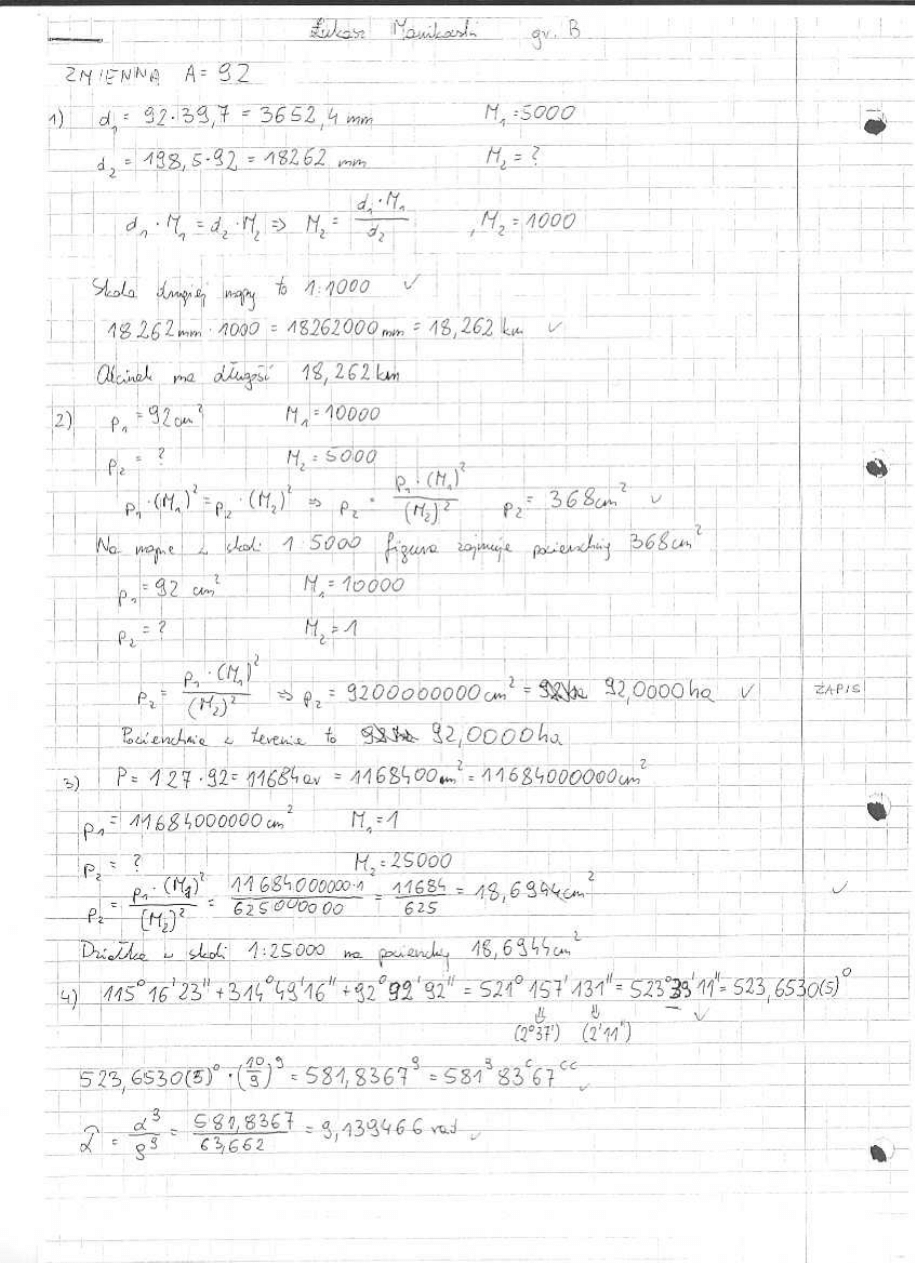 Łukasz Manikowski gr. B
ZMIENNA A = 92
1) d₁ = 92·39,7 = 3652,4 mm M₁ = 5000
d₂ = 198,5·92 = 18262 mm M₂ = ?
d₁·M₁ = d₂·M₂ ⇒ M₂ = d₁·M₁ / d₂ , M₂ = 1000
Skala drugiej mapy to 1:1000 ✓
18262 mm · 1000 = 18262000 mm = 18,262 km ✓
Odcinek ma długość 18,262 km
2) p₁ = 92 cm² M₁ = 10000
p₂ = ? M₂ = 5000
p₁·(M₁)² = p₂·(M₂)² ⇒ p₂ = p₁·(M₁)² / (M₂)² p₂ = 368 cm² ✓
Na mapie w skali 1:5000 figura zajmuje powierzchnię 368 cm²
p₁ = 92 cm² M₁ = 10000
p₂ = ? M₂ = 1
p₂ = p₁·(M₁)² / (M₂)² ⇒ p₂ = 9200000000 cm² = 92,0000 ha ✓ ZAPIS
Powierzchnia w terenie to 92,0000 ha
3) P = 127·92 = 11684 ar = 1168400 m² = 11684000000 cm²
p₁ = 11684000000 cm² M₁ = 1
p₂ = ? M₂ = 25000
p₂ = p₁·(M₁)² / (M₂)² = 11684000000·1 / 625000000 = 11684 / 625 = 18,6944 cm² ✓
Działka w skali 1:25000 ma powierzchnię 18,6944 cm²
4) 115° 16' 23'' + 314° 49' 16'' + 92° 92' 92'' = 521° 157' 131'' = 523° 39' 11'' = 523,6530(5)°
⇓ ⇓ ✓
(2° 37') (2' 11'')
523,6530(5)° · (10/9)ᵍ = 581,8367ᵍ = 581ᵍ 83ᶜ 67ᶜᶜ ✓
α̂ = αᵍ / ρᵍ = 581,8367 / 63,662 = 9,139466 rad ✓